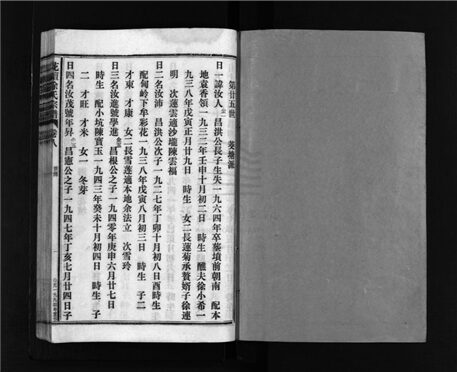 第廿五世 葵塘派
日一諱汝人 昌洪公長子生失一九六四年卒葬墳前朝南 配本
地袁香領一九三二年壬申十月初二日 時生 醮夫徐小希一
九三八年戊寅正月廿九日 時生 女二長蓮菊承贅婿子徐連
明 次蓮雲適沙壠陳雲福
日二名汝沛 昌洪公次子一九二七年丁卯十月初八日酉時生
配甸岭下牟彩花一九三八年戊寅八月初三日 時生 子二
才東 才康 女二長雪蓮適本地余法立 次雪玲
日三名汝進號學進 昌根公之子一九四零年庚申六月廿七日
時生 配小坑陳寶玉一九四三年癸未十月初四日 時生 子
二 才旺 才米 女一 冬芽
日四名汝茂號年昇 昌憲公之子一九四七年丁亥七月廿四日子